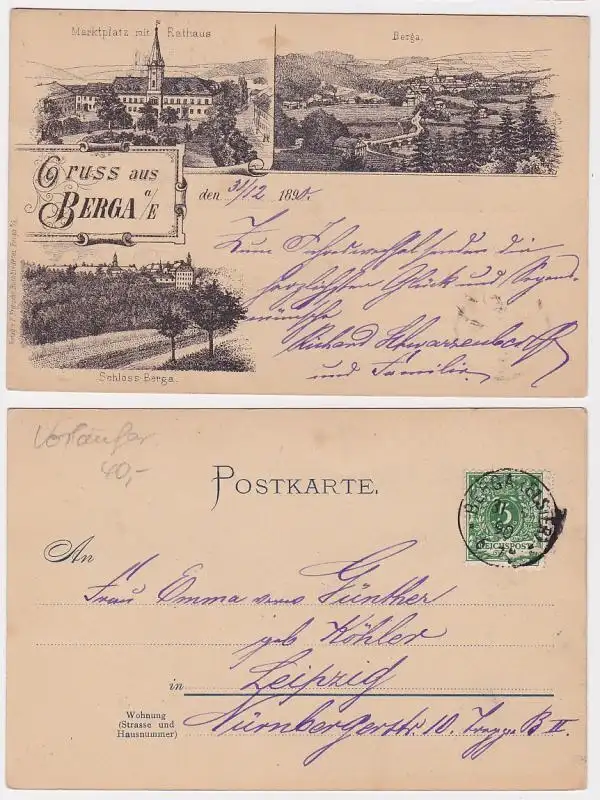 Marktplatz mit Rathaus
Berga.
Gruss aus
BERGA a/E
den 31/12 1890.
Zum Jahreswechsel senden die
herzlichsten Glück und Segens-
wünsche
Richard Schwarzenberg
und Familie.
Schloss Berga.
Vorläufer
40,-
POSTKARTE.
BERGA (ELSTER)
5
REICHSPOST
An
Frau Emma verw Günther
geb Köhler
in Leipzig
Wohnung
(Strasse und
Hausnummer)
Nürnbergerstr. 10. Treppe B II.